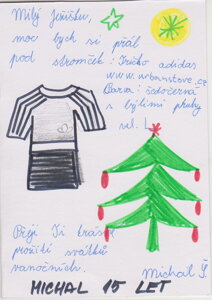 Milý Ježíšku,
moc bych si přál
pod stromček : Tričko adidas
www.urbanstore.cz
Barva : šedočerná
s bílými pruhy
vel. L
Přeji Ti krásné
prožití svátků
vánočních.
Michal Š.
MICHAL 15 LET